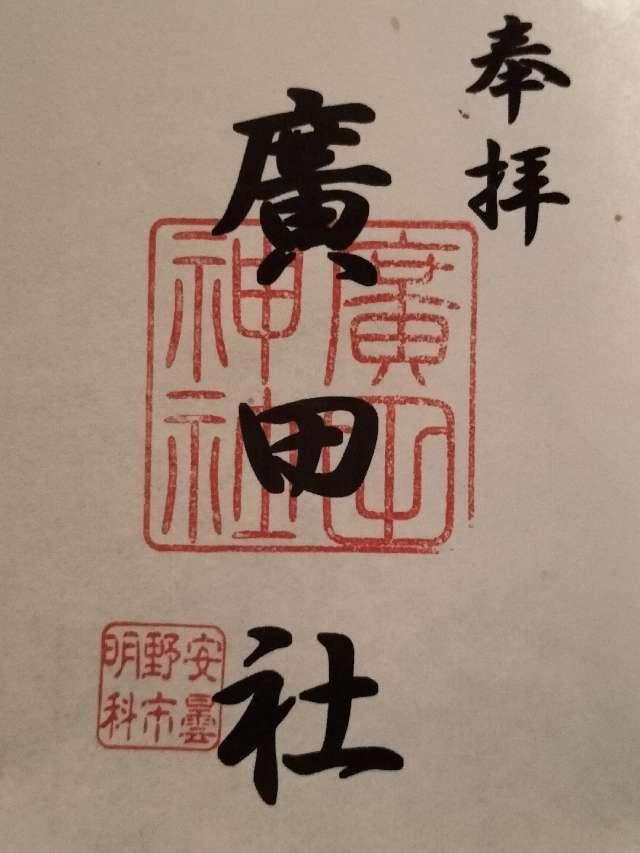 奉拝
廣田社
廣田
神社
安曇
野市
明科